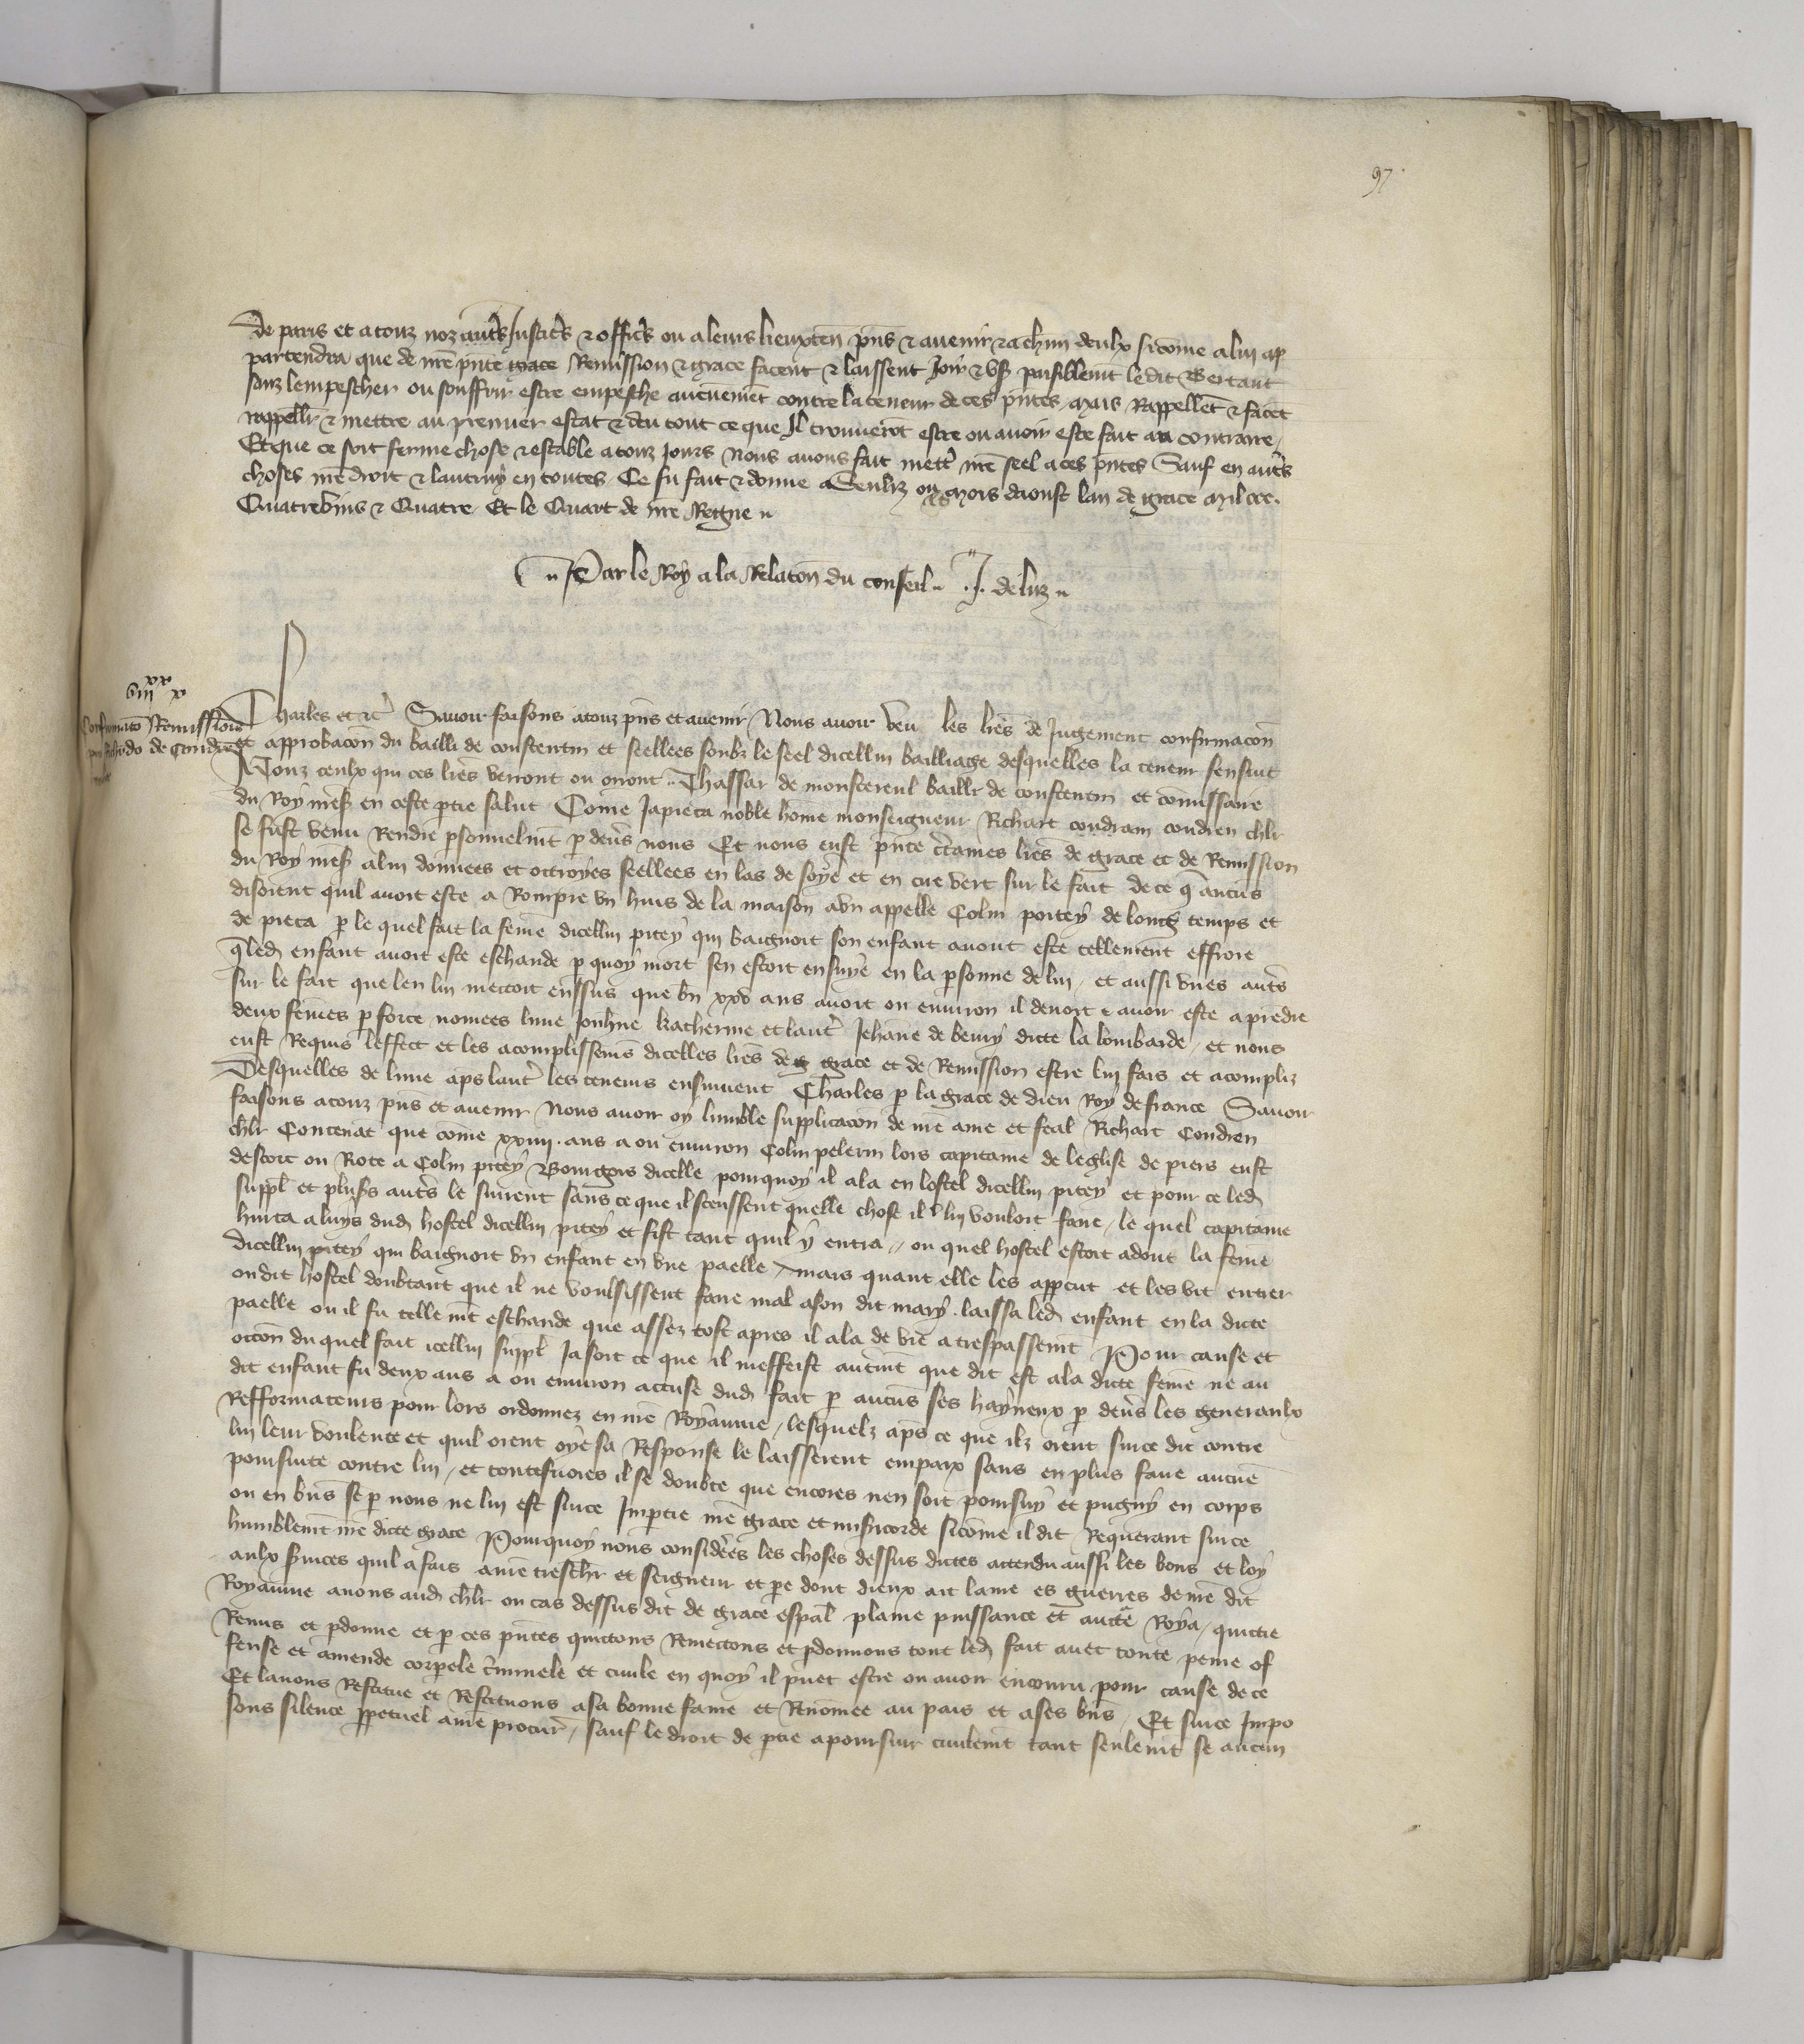 97
de paris et a touz noz autrs Justicrs & officrs ou a leurs lieuxten pns & avenir & a chun deulx sicome a lui ap
partendra que de nre pnte grace Remission & grace facent & laissent Joir & usr paisiblemt ledit Bertaut
sanz lempescher ou souffrir estre empesche aucunemet contre la teneur de ces pntes mais Rappellet & facet
rappellr & mettre au premier estat & deu tout ce que Il trouverot estre ou avoir este fait au contraire
Et que ce soit ferme chose & estable a touz jours nous avons fait mettr nre seel a ces pntes Sauf en autrs
choses nre droit & lautruy en toutes Ce fu fait & donne a Senliz ou mois daoust lan de grace mil ccc.
Quatrevins & Quatre Et le Quart de nre Regne
Par le Roy a la Relacon du conseil J. de luz
viii xx x
Confirmato Remissionis
Charles et ctr Savoir faisons a touz pns et avenir Nous avoir veu les lres de Jugement confirmacon
et approbacon du bailli de constentin et seellees soubz le seel dicellui bailliage desquelles la teneur sensuit
A Touz ceulx qui ces lres verront ou orront Thassar de monstereul baillr de constentin et comissaire
du Roy nres en ceste ptie salut Come Japieca noble home monseigneur Richart condram condren chlr
se fust venu Rendre psonnelmt p devrs nous Et nous eust pnte ctaines lres de grace et de Remission
du Roy nres a lui donnees et octroyes seellees en las de soye et en cire vert sur le fait de ce q aucuns
disoient quil avoit este a Rompre un huis de la maison a un appelle Colin poitey de long temps et
de pieca p le quel fait la feme dicellui pitey qui baignoit son enfant avoit este tellement effroie
q led enfant avoit este eschaude p quoy mort sen estoit ensuye en la psonne de lui et aussi unes autrs
sur le fait que len lui mettoit enssus que bn xxv ans avoit ou environ il devoit avoir este a predre
deux femes p force nomees lune Jouhne katherine et lautr Jehane de beny dicte la lombarde et nous
eust Requis leffect et les acomplissems dicelles lres de grace et de Remission estre lui fais et acompliz
Desquelles de lune aps lautr les teneurs ensuivent Charles p la grace de dieu Roy de france Savoir
faisons a touz pns et avenir Nous avoir oy lumble supplicacon de nre ame et feal Richart Condren
chlr Contenat que come xxiiii. ans a ou environ Colin pelerin lors capitaine de leglise de piers eust
descort ou Rote a Colin pitey Bourgois dicelle pourquoy il ala en lostel dicellui pitey et pour ce led
suppl et plusrs autrs le suirent sans ce que il sceussent quelle chose il lui vouloit faire le quel capitaine
hurta a luys dud hostel dicellui pitey et fist tant quil y entra ou quel hostel estoit adont la feme
dicellui pitey qui baignoit un enfant en une paelle mais quant elle les appcut et les vit entrer
oudit hostel doubtant que il ne voulsissent faire mal a son dit mary. laissa led enfant en la dicte
paelle ou il fu telle mt eschaude que assez tost apres il ala de vie a trespassemt Pour cause et
occon du quel fait icellui suppl Ja soit ce que il meffeist autrmt que dit est a la dicte feme ne au
dit enfant fu deux ans a ou environ accuse dud fait p aucuns ses hayneux p devrs les generaulx
Refformateurs pour lors ordonnez en nre Royaume lesquelz aps ce que ilz orent sur ce dit contre
lui leur voulente et quil orent oye sa Response le laisserent em paix sans en plus faire aucune
poursuite contre lui et toutesvoies il se doubte que encores nen soit poursuy et pugny en corps
ou en bns se p nous ne lui est sur ce Impartie nre grace et misricorde sicome il dit Requerant sur ce
humblemt nre dicte grace Pourquoy nous considerees les choses dessus dictes attendu aussi les bons et loy
aulx svices quil a fais a nre treschr et seigneur et pere dont dieux ait lame es guerres de nre dit
Royaume avons aud chlr ou cas dessus dit de grace espal plaine puissance et aucte Roya quictie
Remis et pdonne et p ces pntes quictons Remectons et pdonnons tout led fait avec toute peine of
fense et amende corporele crminele et civile en quoy il puet estre ou avoir encouru pour cause de ce
Et lavons Restitue et Restituons a sa bonne fame et Renomee au pais et a ses bns Et sur ce Impo
sons silence ppetuel a nre procur sauf le droit de ptie a poursuir civilemt tant seulemt se aucun